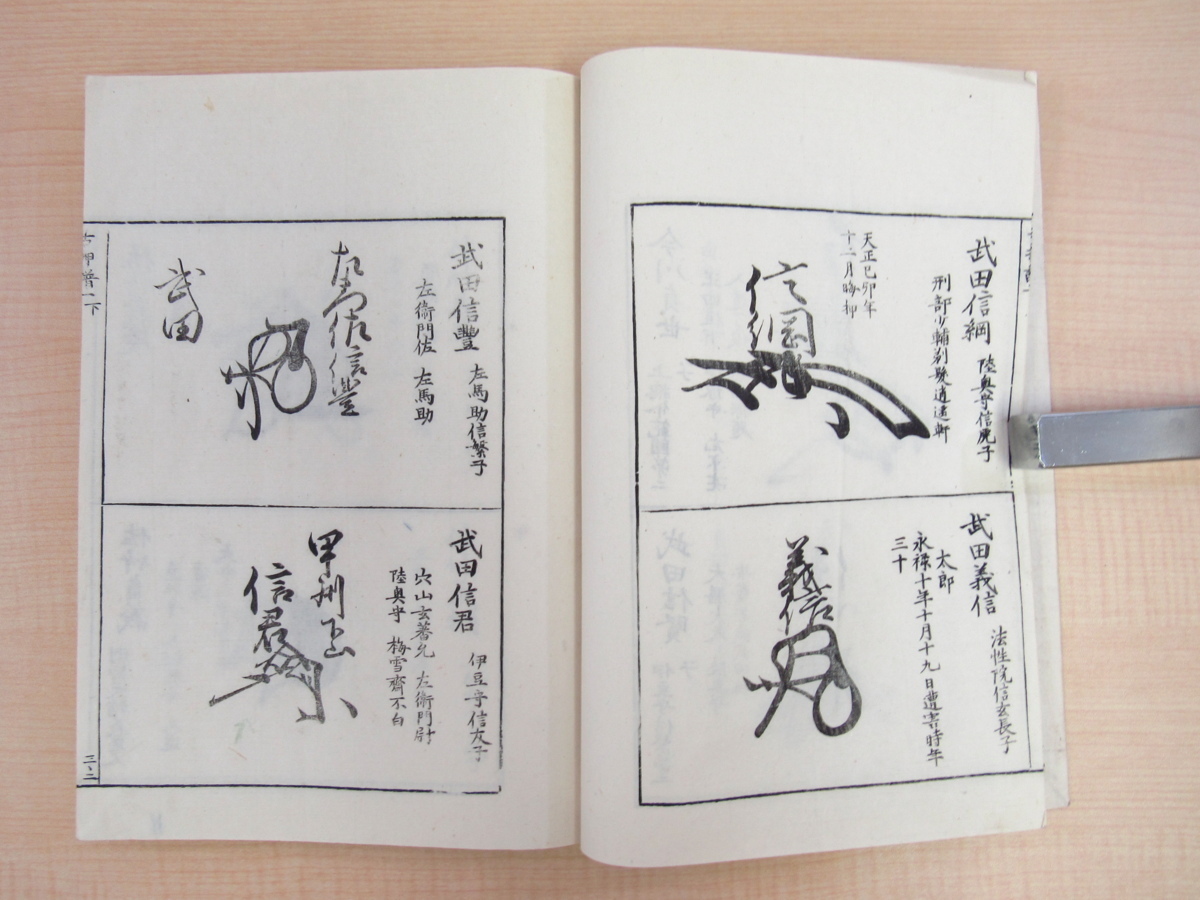 武田信綱 陸奥守信虎子
刑部少輔剃髪逍遥軒
天正己卯年
十二月晦押
信綱
武田義信 法性院信玄長子
太郎
永禄十年十月十九日遭害時年
三十
義信
武田信豐 左馬助信繁子
左衛門佐 左馬助
左馬佐信豐
武田
武田信君 伊豆守信友子
穴山玄蕃允 左衛門尉
陸奥守 梅雪齋不白
甲州
信君
古押譜一下
三二